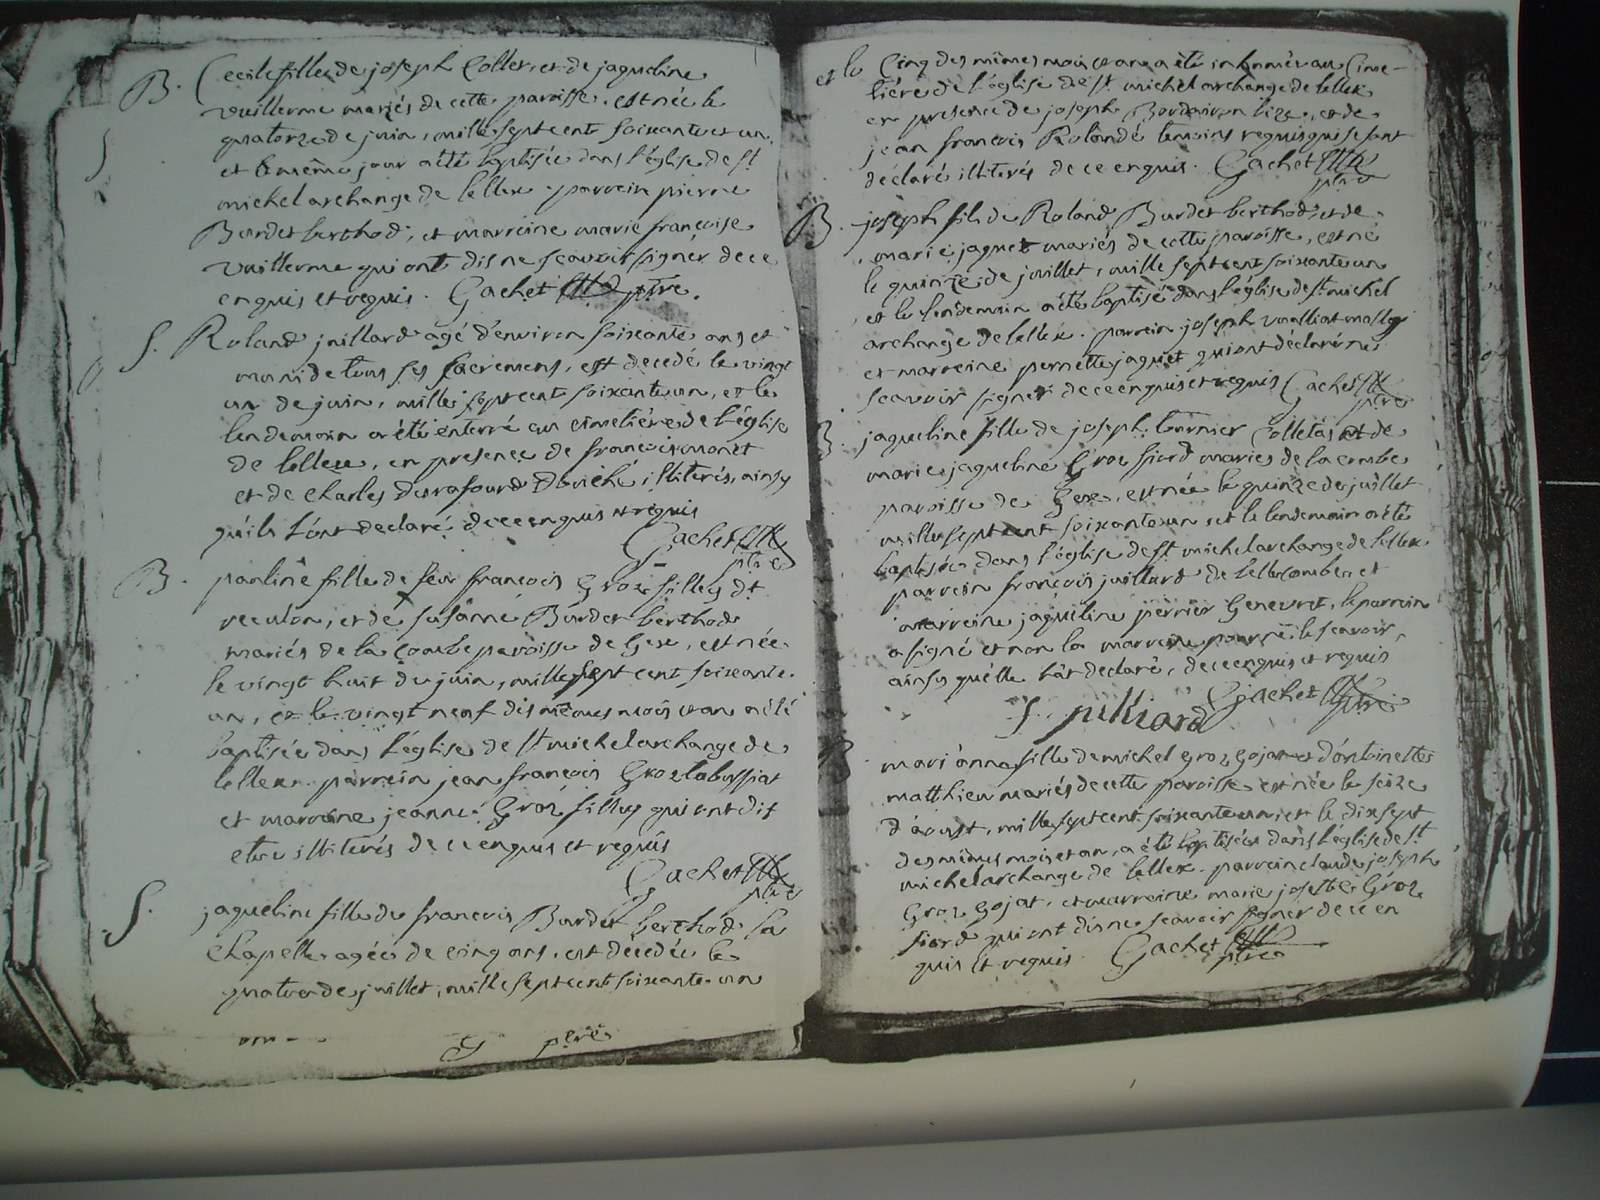 B. Cecile fille de joseph Collet, et de jaqueline
vuillerme mariés de cette paroisse, est née le
quatorze de juin, mille sept cent soixante et un,
et le même jour a été baptisée dans l'église de st
michel archange de lellex, parrein pierre
Burdet berthod, et marreine marie françoise
vuillerme qui ont dis ne scavoir signer de ce
enquis et requis. Gachet ptre.
S. Roland juillard agé d'environ soixante ans et
muni de tous ses sacremens, est decedé le vingt
un de juin, mille sept cent soixante un, et le
lendemain a été enterré au cimetière de l'église
de lellex, en presence de françois monet
et de Charles illiterés, ainsy
qu'ils l'ont declaré, de ce enquis et requis
Gachet
ptre
B. pauline fille de feu françois Groz filley dt
et de susanne Burdet berthod
mariés de la combe paroisse de Gex, est née
le vingt huit de juin, mille sept cent soixante
un, et le vingt neuf des mêmes mois et an a été
baptisée dans l'église de st michel archange de
lellex. parrein jean françois Groz
et marreine jeanne Groz filley qui ont dit
etre illiterés de ce enquis et requis
Gachet
ptre
S. jaqueline fille de françois Burdet berthod la
chapelle agée de cinq ans, est décédée le
quatre de juillet, mille sept cent soixante un
ptre
et le Cinq des mêmes mois et an a été inhumée au Cime-
tière de l'église de st michel archange de lellex
en presence de joseph et de
jean françois Rolandé temoins requis qui se sont
declaré illiterés de ce enquis. Gachet
ptre
B. joseph fils de Roland Burdet berthod, et de
marie jaquet mariés de cette paroisse, est né
le quinze de juillet, mille sept cent soixante un
et le lendemain a été baptisé dans l'église de st michel
archange de lellex. parrein joseph
et marreine pernette jaquet qui ont déclaré ne
scavoir signer de ce enquis et requis Gachet
ptre
B. jaqueline fille de joseph tournier Colletas et de
marie jaqueline Groz fiord mariés de la combe
paroisse de Gex, est née le quinze de juillet
mille sept cent soixante un et le lendemain a été
baptisée dans l'église de st michel archange de lellex
parrein françois juillard de et
marreine jaqueline perrier Genevret, le parrein
a signé et non la marreine pour ne le scavoir,
ainsy qu'elle l'at declaré, de ce enquis et requis
f. juilliard Gachet ptre
B mari anne fille de michel Groz Gojat et d'antoinette
matthieu mariés de cette paroisse est née le seize
d'aoust, mille sept cent soixante un, et le dix sept
des mêmes mois et an, a été baptisée dans l'église de st
michel archange de lellex. parrein claude joseph
Groz Gojat, et marreine marie josette Groz
fiord qui ont dis ne scavoir signer de ce en
quis et requis. Gachet
ptre